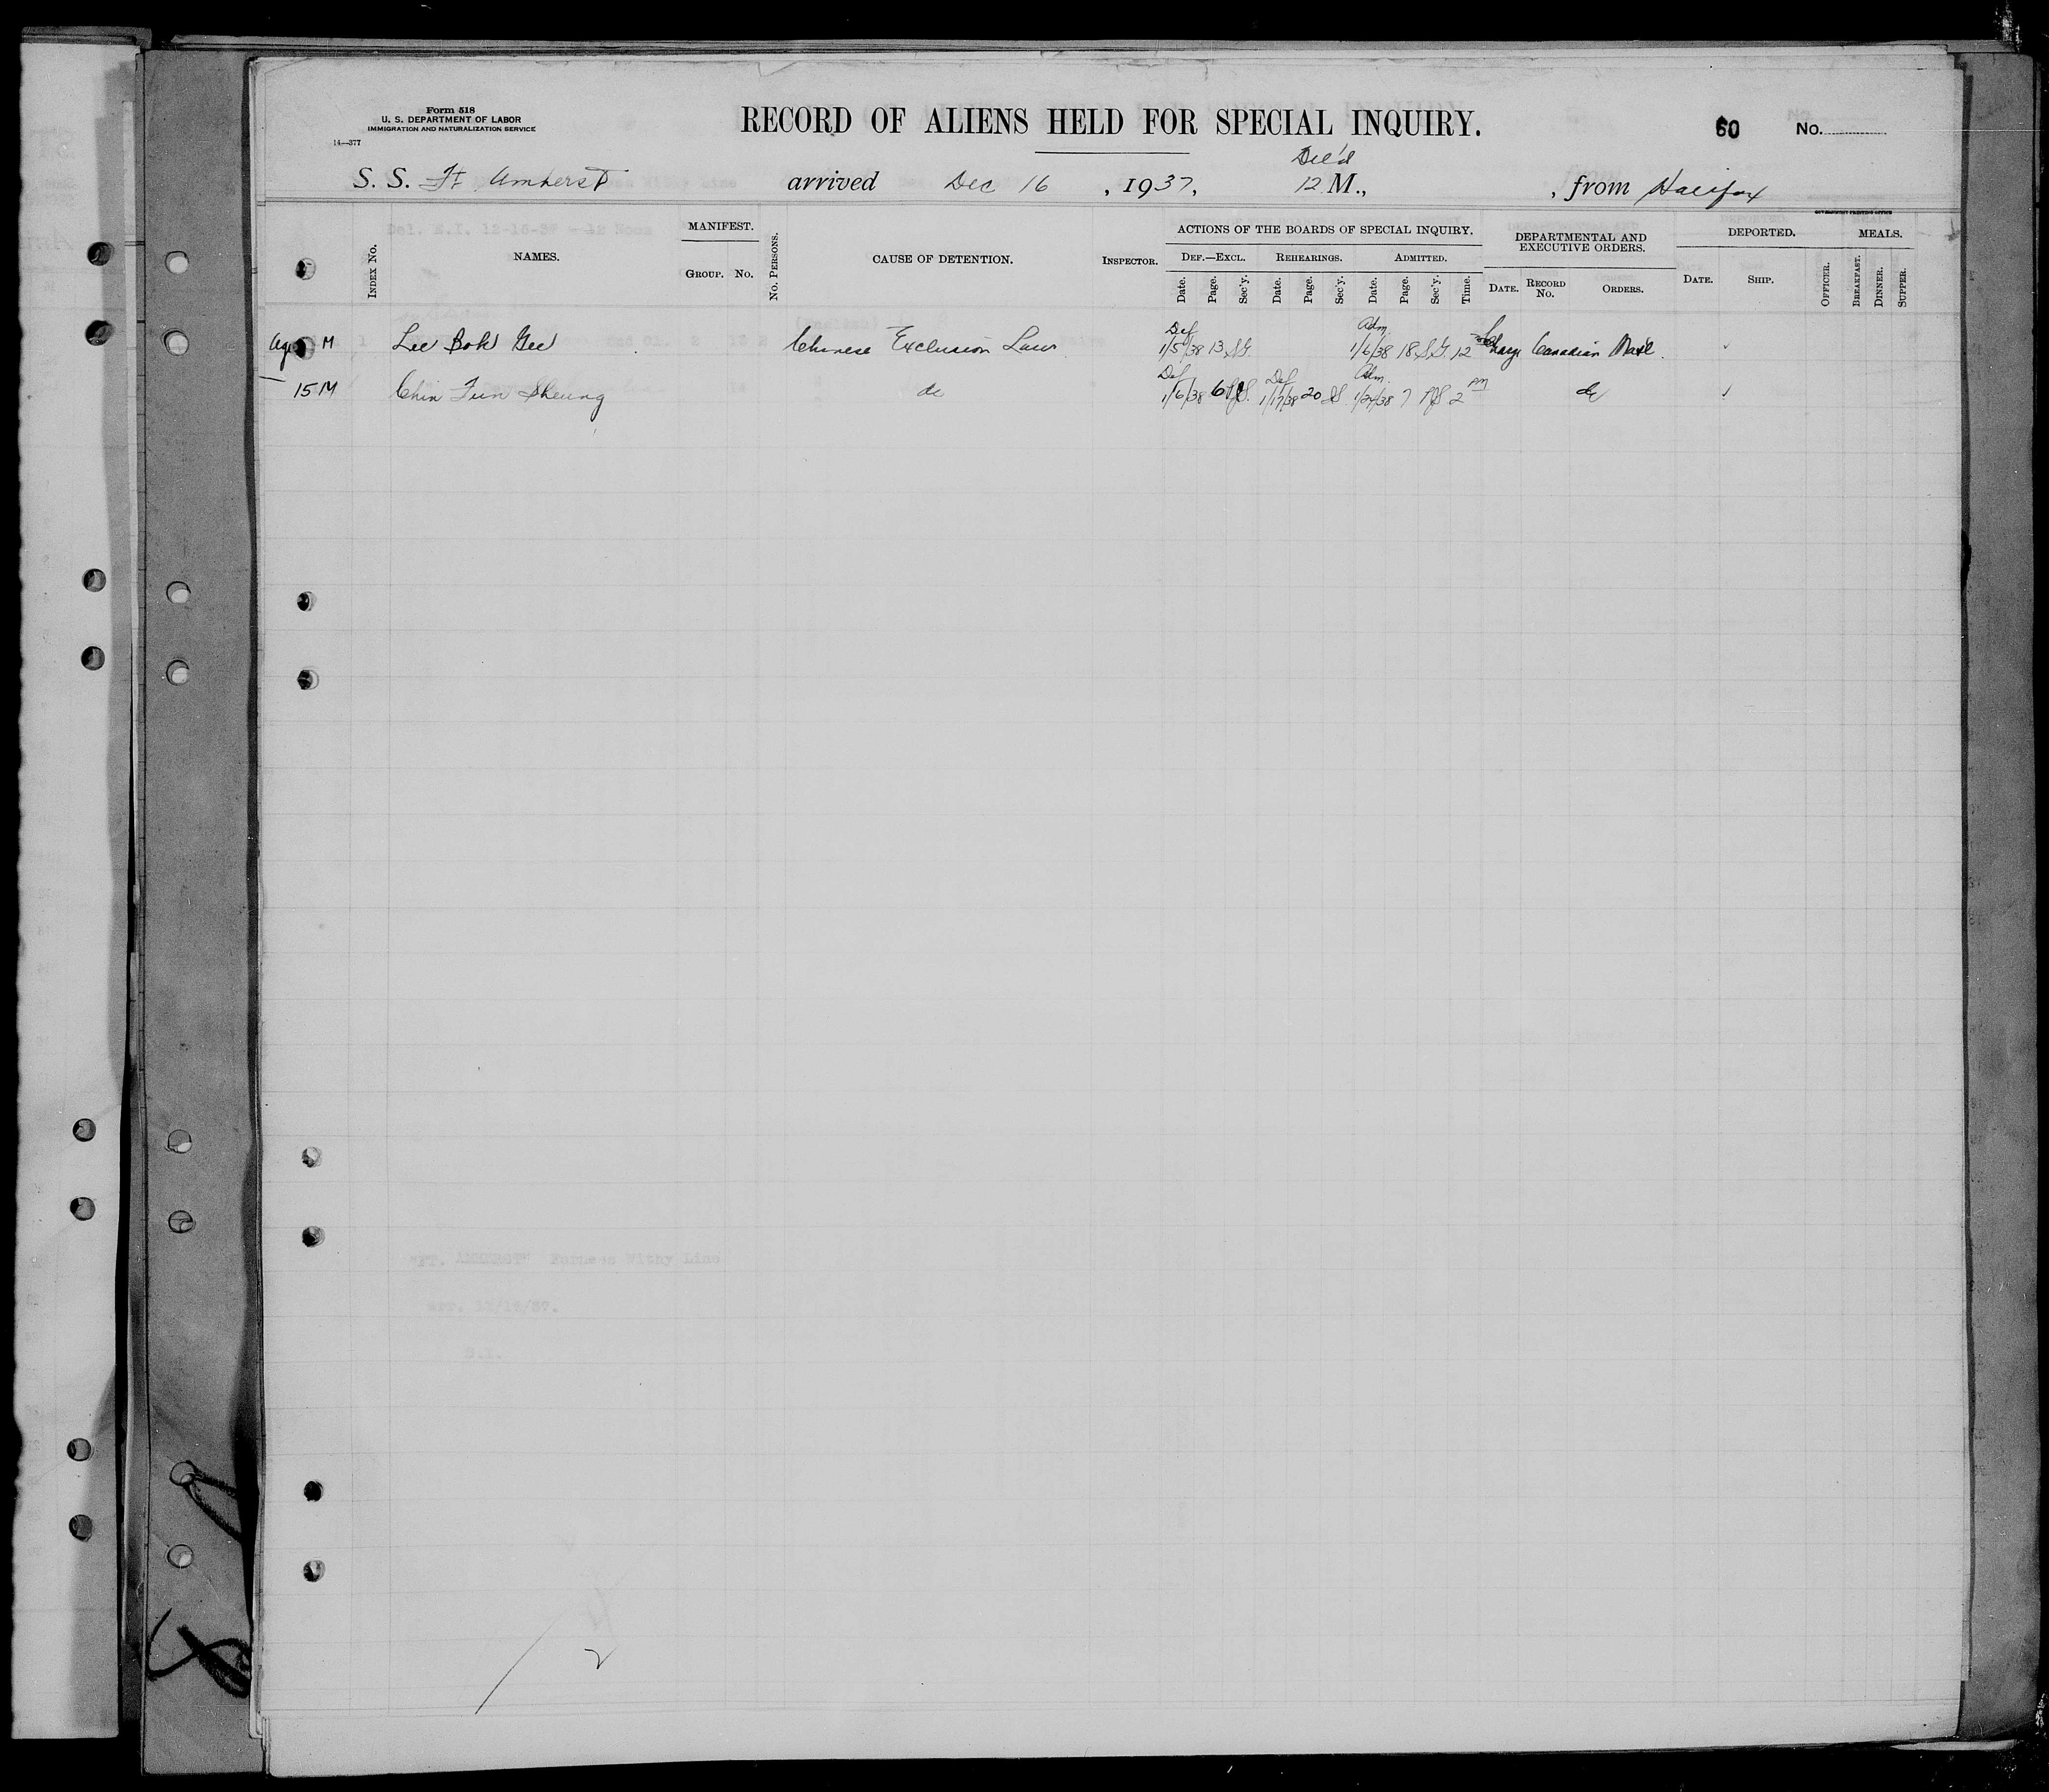 Form 518
U. S. DEPARTMENT OF LABOR
IMMIGRATION AND NATURALIZATION SERVICE
14—377
RECORD OF ALIENS HELD FOR SPECIAL INQUIRY.
60 No.
Del'd
S. S. Ft. Amherst arrived Dec 16, 1937, 12 M., , from Halifax
GOVERNMENT PRINTING OFFICE
Del. S.I. 12-16-37 - 12 Noon
INDEX No. NAMES. MANIFEST. GROUP. No. No. PERSONS. CAUSE OF DETENTION. INSPECTOR. ACTIONS OF THE BOARDS OF SPECIAL INQUIRY. DEPARTMENTAL AND EXECUTIVE ORDERS. DEPORTED. MEALS.
DEF.—EXCL. REHEARINGS. ADMITTED.
Date. Page. Sec'y. Date. Page. Sec'y. Date. Page. Sec'y. Time. DATE. RECORD No. ORDERS. DATE. SHIP. OFFICER. BREAKFAST. DINNER. SUPPER.
Def Adm.
Age M Lee Bok Gee Chinese Exclusion Law 1/5/38 13 S.G. 1/6/38 18 S.G. 12 Charge Canadian Nat'l.
Def Def Adm. PM
15 M Chin Fun Sheung do 1/6/38 6 1/17/38 20 1/24/38 7 2 do
"FT. AMHERST" Furness Withy Line
arr. 12/16/37.
S.I.
2